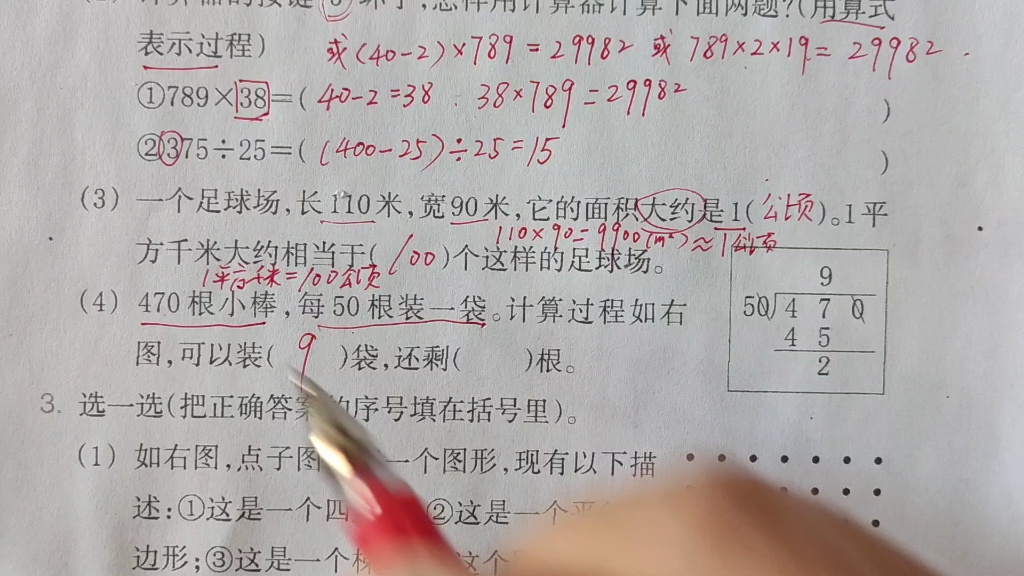 计算器的按键"3"坏了,怎样用计算器计算下面两题?(用算式
表示过程) 或(40-2)×789=29982 或 789×2×19=29982.
①789×38=( 40-2=38 38×789=29982 )
②375÷25=( (400-25)÷25=15 )
(3) 一个足球场,长110米,宽90米,它的面积大约是1(公顷)。1平
110×90=9900(m²)≈1公顷
方千米大约相当于(100)个这样的足球场。
1平方千米=100公顷
(4) 470根小棒,每50根装一袋。计算过程如右
图,可以装( 9 )袋,还剩( )根。
9
50 4 7 0
4 5
2
3. 选一选(把正确答案的序号填在括号里)。
(1) 如右图,点子图 一个图形,现有以下描
述:①这是一个四 ②这是一个平
边形;③这是一个 这个